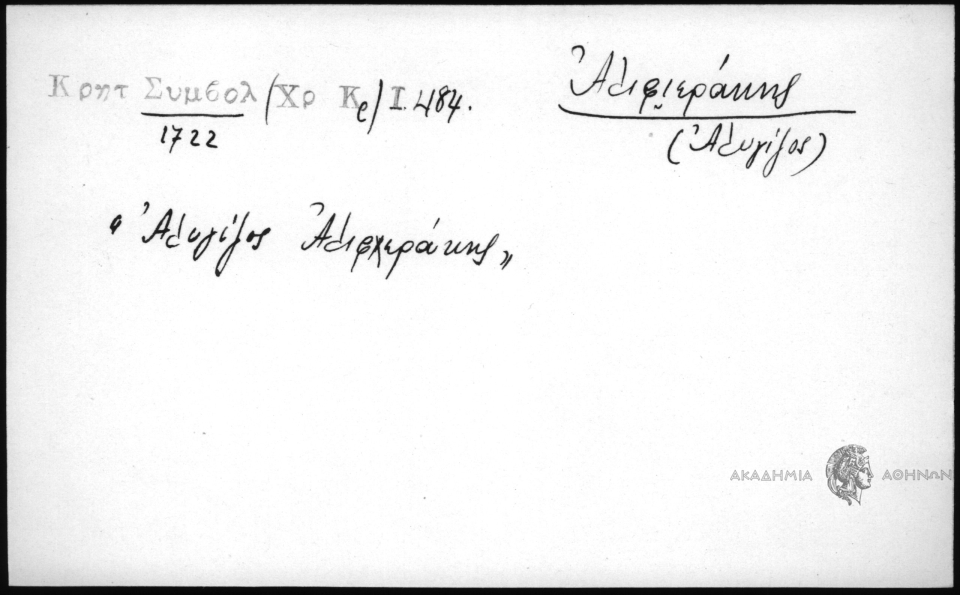 Κρητ Συμβολ (Χρ Κρ) Ι. 484.
1722
Ἀλιφιεράκης
(Ἀλυγίζος)
“ Ἀλυγίζος Ἀλιφιεράκης „
ΑΚΑΔΗΜΙΑ ΑΘΗΝΩΝ